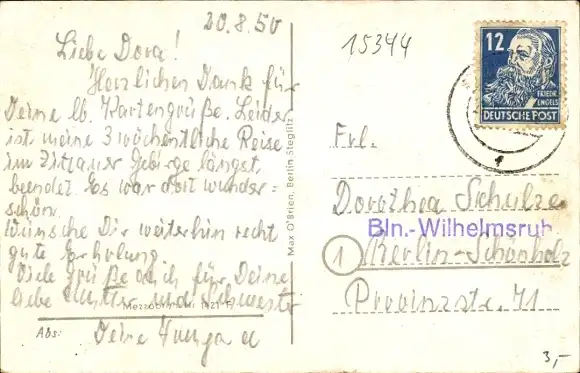 20.8.50
Liebe Dora!
Herzlichen Dank für
Deine lb. Kartengrüße. Leider
ist meine 3 wöchentliche Reise
im Zittauer Gebirge längst
beendet. Es war dort wunder=
schön.
Wünsche Dir weiterhin recht
gute Erholung.
Viele Grüße auch für Deine
liebe Mutter und Schwester
Deine
Abs:
Max O'Brien, Berlin Steglitz
15344
12
FRIEDR.
ENGELS
DEUTSCHE POST
Frl.
Dorothea Schulze
Bln.-Wilhelmsruh
1 Berlin-Schönholz
Provinzstr. 71
3,-